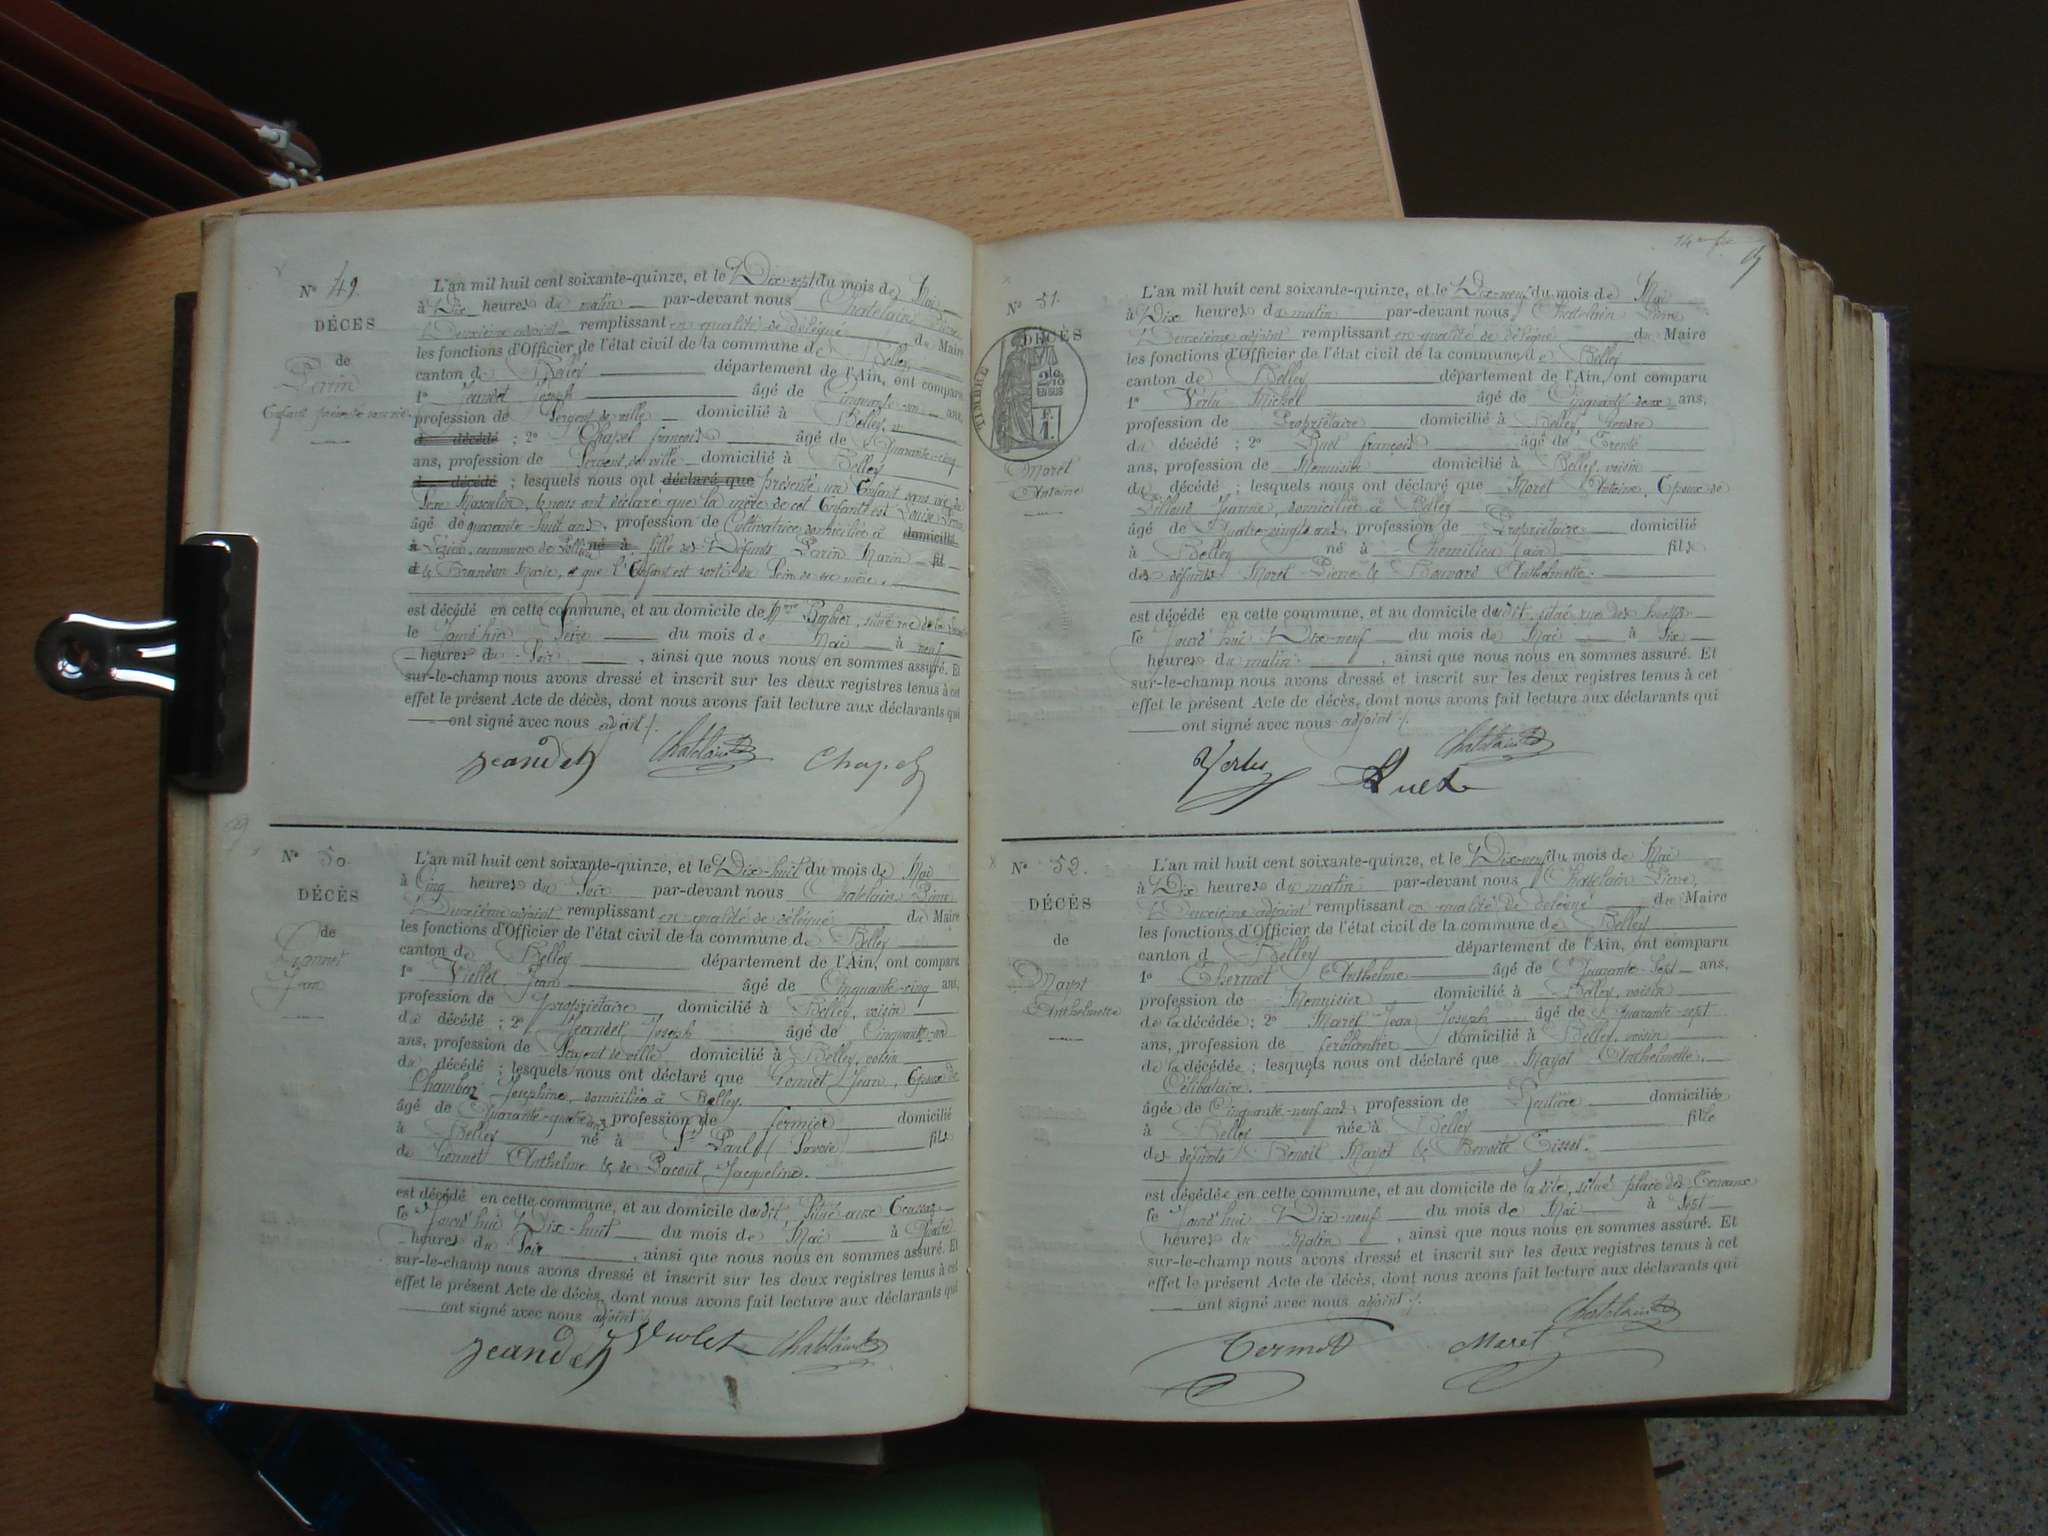 N° 49.
DÉCÈS
de
Perrin
Enfant présenté sans vie
L'an mil huit cent soixante-quinze, et le Dix-sept du mois de Mai
à Dix heures du matin par-devant nous Chatelain Pierre
Deuxième adjoint remplissant en qualité de délégué du Maire
les fonctions d'Officier de l'état civil de la commune de Belley
canton de Belley département de l'Ain, ont comparu
1° Jeandet Joseph âgé de Cinquante-un ans,
profession de Sergent de ville domicilié à Belley
d décédé ; 2° Chapel françois âgé de Quarante-cinq
ans, profession de Sergent de ville domicilié à Belley
d décédé ; lesquels nous ont déclaré que présenté un Enfant sans vie du
Sexe Masculin, & nous ont déclaré que la mère de cet Enfant est Louise Perrin
âgé de quarante-huit ans, profession de Cultivatrice domiciliée à domicilié
à commune de né à fille des Défunts Perrin Marin fil
d & Brandon Marie, et que l'Enfant est sorti du Sein de sa mère.
est décédé en cette commune, et au domicile de
le Jourd'hier Seize du mois de Mai à neuf
heures du Soir, ainsi que nous nous en sommes assuré. Et
sur-le-champ nous avons dressé et inscrit sur les deux registres tenus à cet
effet le présent Acte de décès, dont nous avons fait lecture aux déclarants qui
ont signé avec nous adjoint /.
Jeandet Chatelain Chapel
N° 50.
DÉCÈS
de
Gonnet
Jean
L'an mil huit cent soixante-quinze, et le Dix-huit du mois de Mai
à Cinq heures du Soir par-devant nous Chatelain Pierre
Deuxième adjoint remplissant en qualité de délégué du Maire
les fonctions d'Officier de l'état civil de la commune de Belley
canton de Belley département de l'Ain, ont comparu
1° Viollet Jean âgé de Cinquante-cinq ans,
profession de propriétaire domicilié à Belley, voisin
du décédé ; 2° Jeandet Joseph âgé de Cinquante-un
ans, profession de Sergent de ville domicilié à Belley, voisin
du décédé ; lesquels nous ont déclaré que Gonnet Jean, Epoux de
Chamboz Josephine, domicilié à Belley.
âgé de Quarante-quatre ans, profession de fermier domicilié
à Belley né à St Paul (Savoie) fils
de Gonnet Anthelme & de Pacout Jacqueline.
est décédé en cette commune, et au domicile dudit, Situé aux
le Jourd'hui Dix-huit du mois de Mai à Quatre
heures du Soir, ainsi que nous nous en sommes assuré. Et
sur-le-champ nous avons dressé et inscrit sur les deux registres tenus à cet
effet le présent Acte de décès, dont nous avons fait lecture aux déclarants qui
ont signé avec nous adjoint /.
Jeandet Violet Chatelain
N° 51.
DÉCÈS
TIMBRE
2/10 EN SUS
F.
1.
Moret
Antoine
L'an mil huit cent soixante-quinze, et le Dix-neuf du mois de Mai
à Dix heures du matin par-devant nous Chatelain Pierre
Deuxième adjoint remplissant en qualité de délégué du Maire
les fonctions d'Officier de l'état civil de la commune de Belley
canton de Belley département de l'Ain, ont comparu
1° Michel âgé de Cinquante-deux ans,
profession de Propriétaire domicilié à Belley, Gendre
du décédé ; 2° Ruet françois âgé de Trente
ans, profession de Menuisier domicilié à Belley, voisin
du décédé ; lesquels nous ont déclaré que Moret Antoine, Epoux de
Pilloud Jeanne, domicilié à Belley
âgé de Quatre-vingts ans, profession de Propriétaire domicilié
à Belley né à Chemilieu (ain) fils
des défunts Moret Pierre & Bouvard Anthelmette.
est décédé en cette commune, et au domicile dudit, situé rue des
le Jourd'hui Dix-neuf du mois de Mai à Six
heures du matin, ainsi que nous nous en sommes assuré. Et
sur-le-champ nous avons dressé et inscrit sur les deux registres tenus à cet
effet le présent Acte de décès, dont nous avons fait lecture aux déclarants qui
ont signé avec nous adjoint /.
Chatelain
Ruet
N° 52.
DÉCÈS
de
Mayot
Anthelmette
L'an mil huit cent soixante-quinze, et le Dix-neuf du mois de Mai
à Dix heures du matin par-devant nous Chatelain Pierre,
Deuxième adjoint remplissant en qualité de délégué du Maire
les fonctions d'Officier de l'état civil de la commune de Belley
canton d Belley département de l'Ain, ont comparu
1° Thermet Anthelme âgé de Quarante-sept ans,
profession de Menuisier domicilié à Belley, voisin
de la décédée ; 2° Maret Jean Joseph âgé de Quarante-sept
ans, profession de ferblantier domicilié à Belley, voisin
de la décédée ; lesquels nous ont déclaré que Mayot Anthelmette,
Célibataire.
âgée de Cinquante-neuf ans, profession de Rentière domiciliée
à Belley née à Belley fille
des défunts Benoit Mayot & Benoite Tissot.
est décédée en cette commune, et au domicile de la dite, situé place des Terreaux
le Jourd'hui Dix-neuf du mois de Mai à Sept
heures du Matin, ainsi que nous nous en sommes assuré. Et
sur-le-champ nous avons dressé et inscrit sur les deux registres tenus à cet
effet le présent Acte de décès, dont nous avons fait lecture aux déclarants qui
ont signé avec nous adjoint /.
Chatelain
Termet Maret